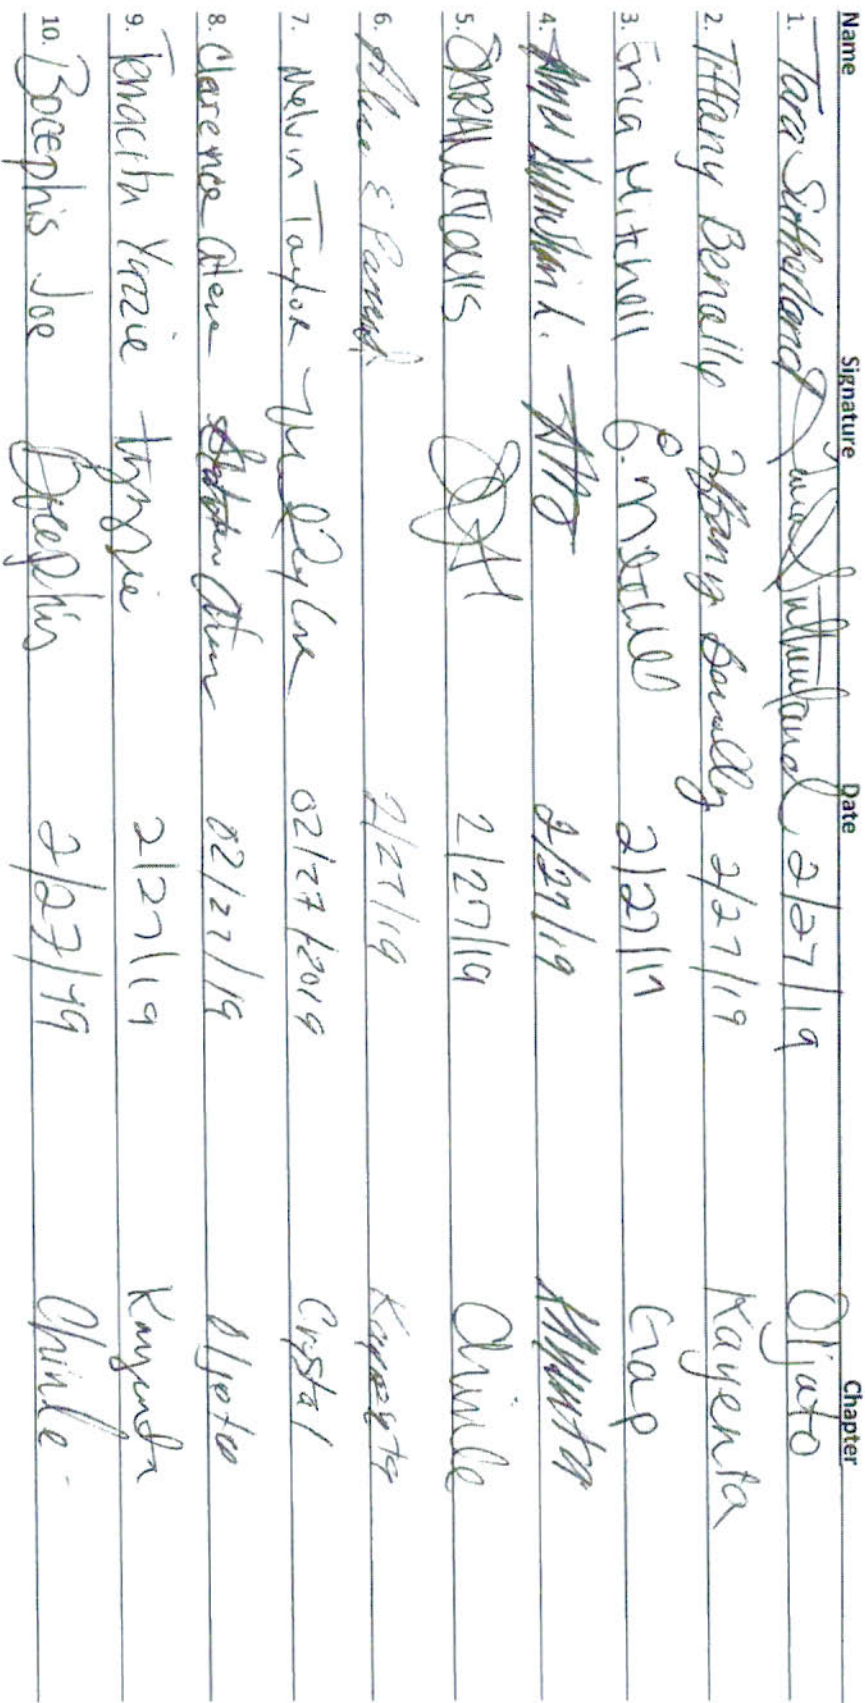 Name Signature Date Chapter
1. Tara Sutherland Tara Sutherland 2/27/19 Oljato
2. Tiffany Benally Tiffany Benally 2/27/19 Kayenta
3. Erica Mitchell E. Mitchell 2/27/19 Gap
4. 2/27/19
5. 2/27/19 Chinle
6. 2/27/19 Kayenta
7. Melvin Taylor 02/27/2019 Crystal
8. Clarence 02/27/19
9. Yazzie tyazzie 2/27/19 Kayenta
10. Bocephis Joe Bocephis 2/27/19 Chinle